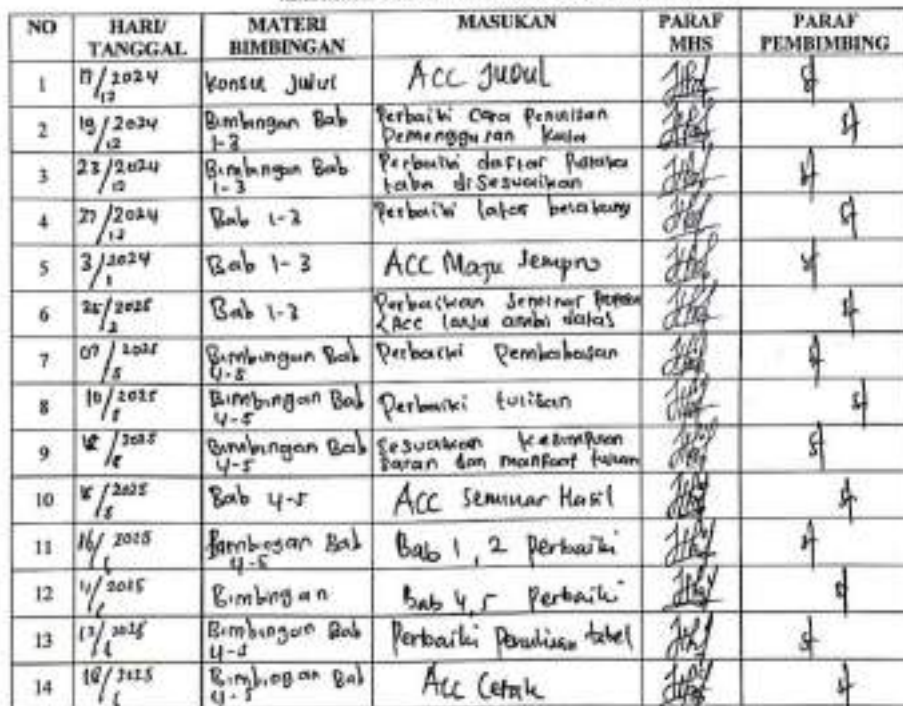 NO HARI/ MATERI MASUKAN PARAF PARAF
TANGGAL BIMBINGAN MHS PEMBIMBING
1 17/2024 Konsul Judul ACC Judul
12
2 19/2024 Bimbingan Bab Perbaiki Cara Penulisan
12 1-3 Pemengguran Kata
3 23/2024 Bimbingan Bab Perbaiki daftar Pustaka
12 1-3 disesuaikan
4 27/2024 Bab 1-3 Perbaiki latar belakang
12
5 3/2024 Bab 1-3 ACC Maju Sempro
1
6 25/2025 Bab 1-3 Perbaikan Seminar
2 ACC lanju ambi datas
7 07/2025 Bimbingan Bab Perbaiki Pembahasan
5 4-5
8 10/2025 Bimbingan Bab Perbaiki tulisan
5 4-5
9 /2025 Bimbingan Bab Sesuaikan kesimpulan
4-5 Saran dan manfaat
10 /2025 Bab 4-5 ACC Seminar Hasil
5
11 16/2025 Bimbingan Bab Bab 1, 2 Perbaiki
4-5
12 11/2025 Bimbingan Bab 4, 5 Perbaiki
13 /2025 Bimbingan Bab Perbaiki Penulisan tabel
4-5
14 18/2025 Bimbingan Bab ACC Cetak
4-5